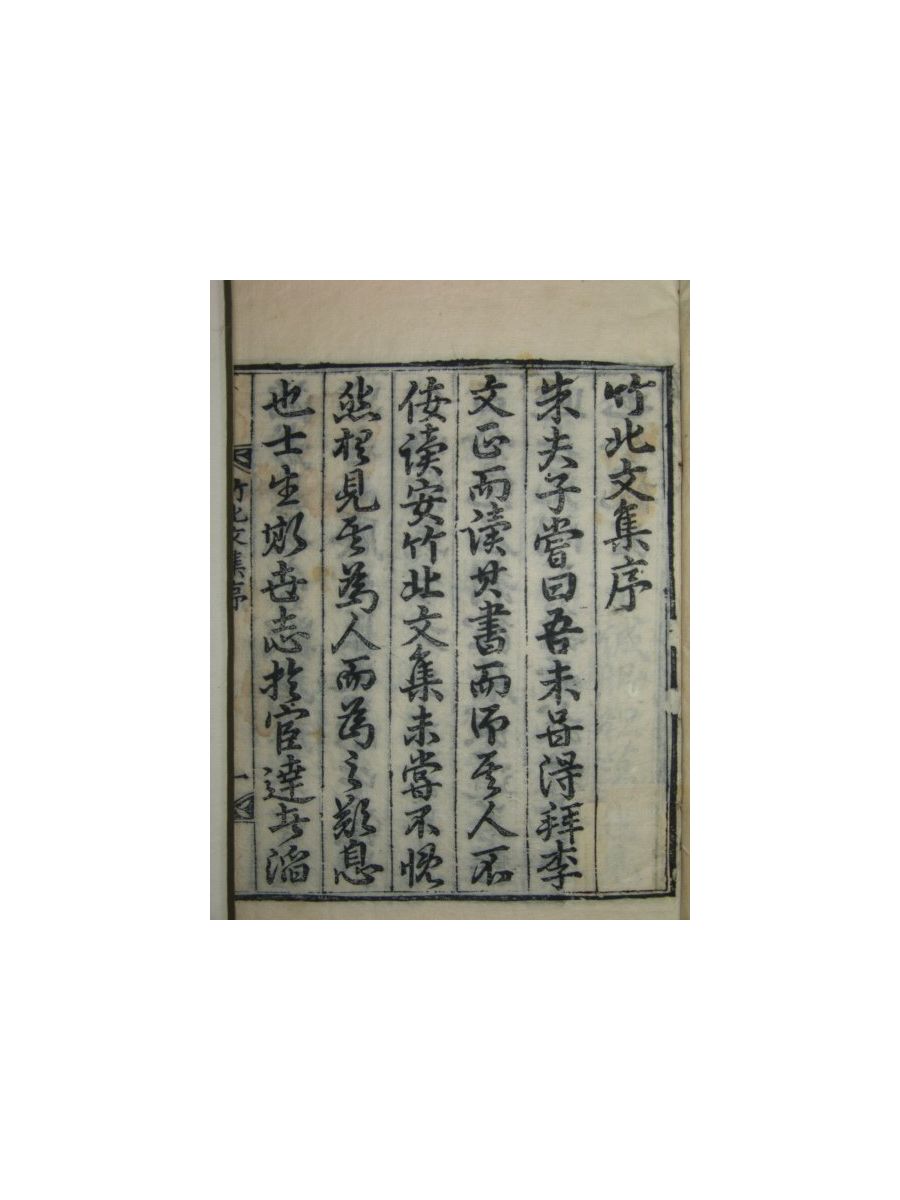 竹北文集序
朱夫子嘗曰吾未甞得拜李
文正而读其書而师其人不
佞读安竹北文集未嘗不慨
然想見其為人而為之歎息
也士生斯世志於宦達者滔
竹北文集序
一